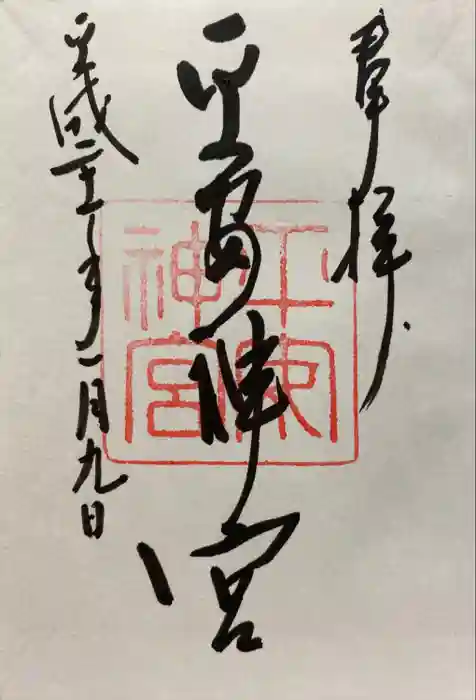 奉拝
平安神宮
平安神宮
平成二十二年一月九日